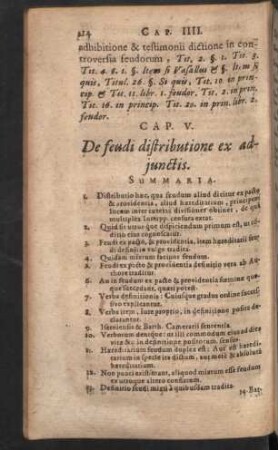 224 CAP. IIII.
adhibitione & testimonii dictione in con-
troversia feudorum, Tit. 2. §. 1. Tit. 3.
Tit. 4. §. 1. §. Item si Vasallus & §. Item si
quis, Titul. 26. §. Si quis, Tit. 10 in prin-
cip. & Tit. 11. libr. 1. feudor. Tit. 2. in prin.
Tit. 16. in princip. Tit. 20. in prin. libr. 2.
feudor.
CAP. V.
De feudi distributione ex ad-
junctis.
SUMMARIA.
1. Distributio hæc, qua feudum aliud dicitur ex pacto
& providentia, aliud hæreditarium, principem
locum inter cæteris divisiones obtinet, de qua
multiplex Interpp. censura extat.
2. Quid sit utrumque despiciendum primum est, ut
ditio ejus cognoscatur.
3. Feudi ex pacto, & providentia, item hæreditarii feu-
di definitio vulgo tradita.
4. Quidam mixtum faciunt feudum.
5. Feudi ex pacto & providentia definitio vera ab Au-
thore traditur.
6. An in feudum ex pacto & providentia fœminæ quo-
que succedant, quæri potest.
7. Verba definitionis: Cuiusque gradus ordine succes-
explicantur.
8. Verba item, Iure proprio, in definitione posito de-
clarantur.
9. Hiseronis & Barth. Camerarii sententia.
10. Verborum
11. Hæreditarium feudum duplex est: Aut est heredi-
tarium in specie ita dictum, aut mere & absolutè
hæreditarium.
12. Non pauci existimant, aliquod mixtum esse feudum
ex utroque altero constitutum.
13. Definitio feudi mixti à quibusdam tradita.